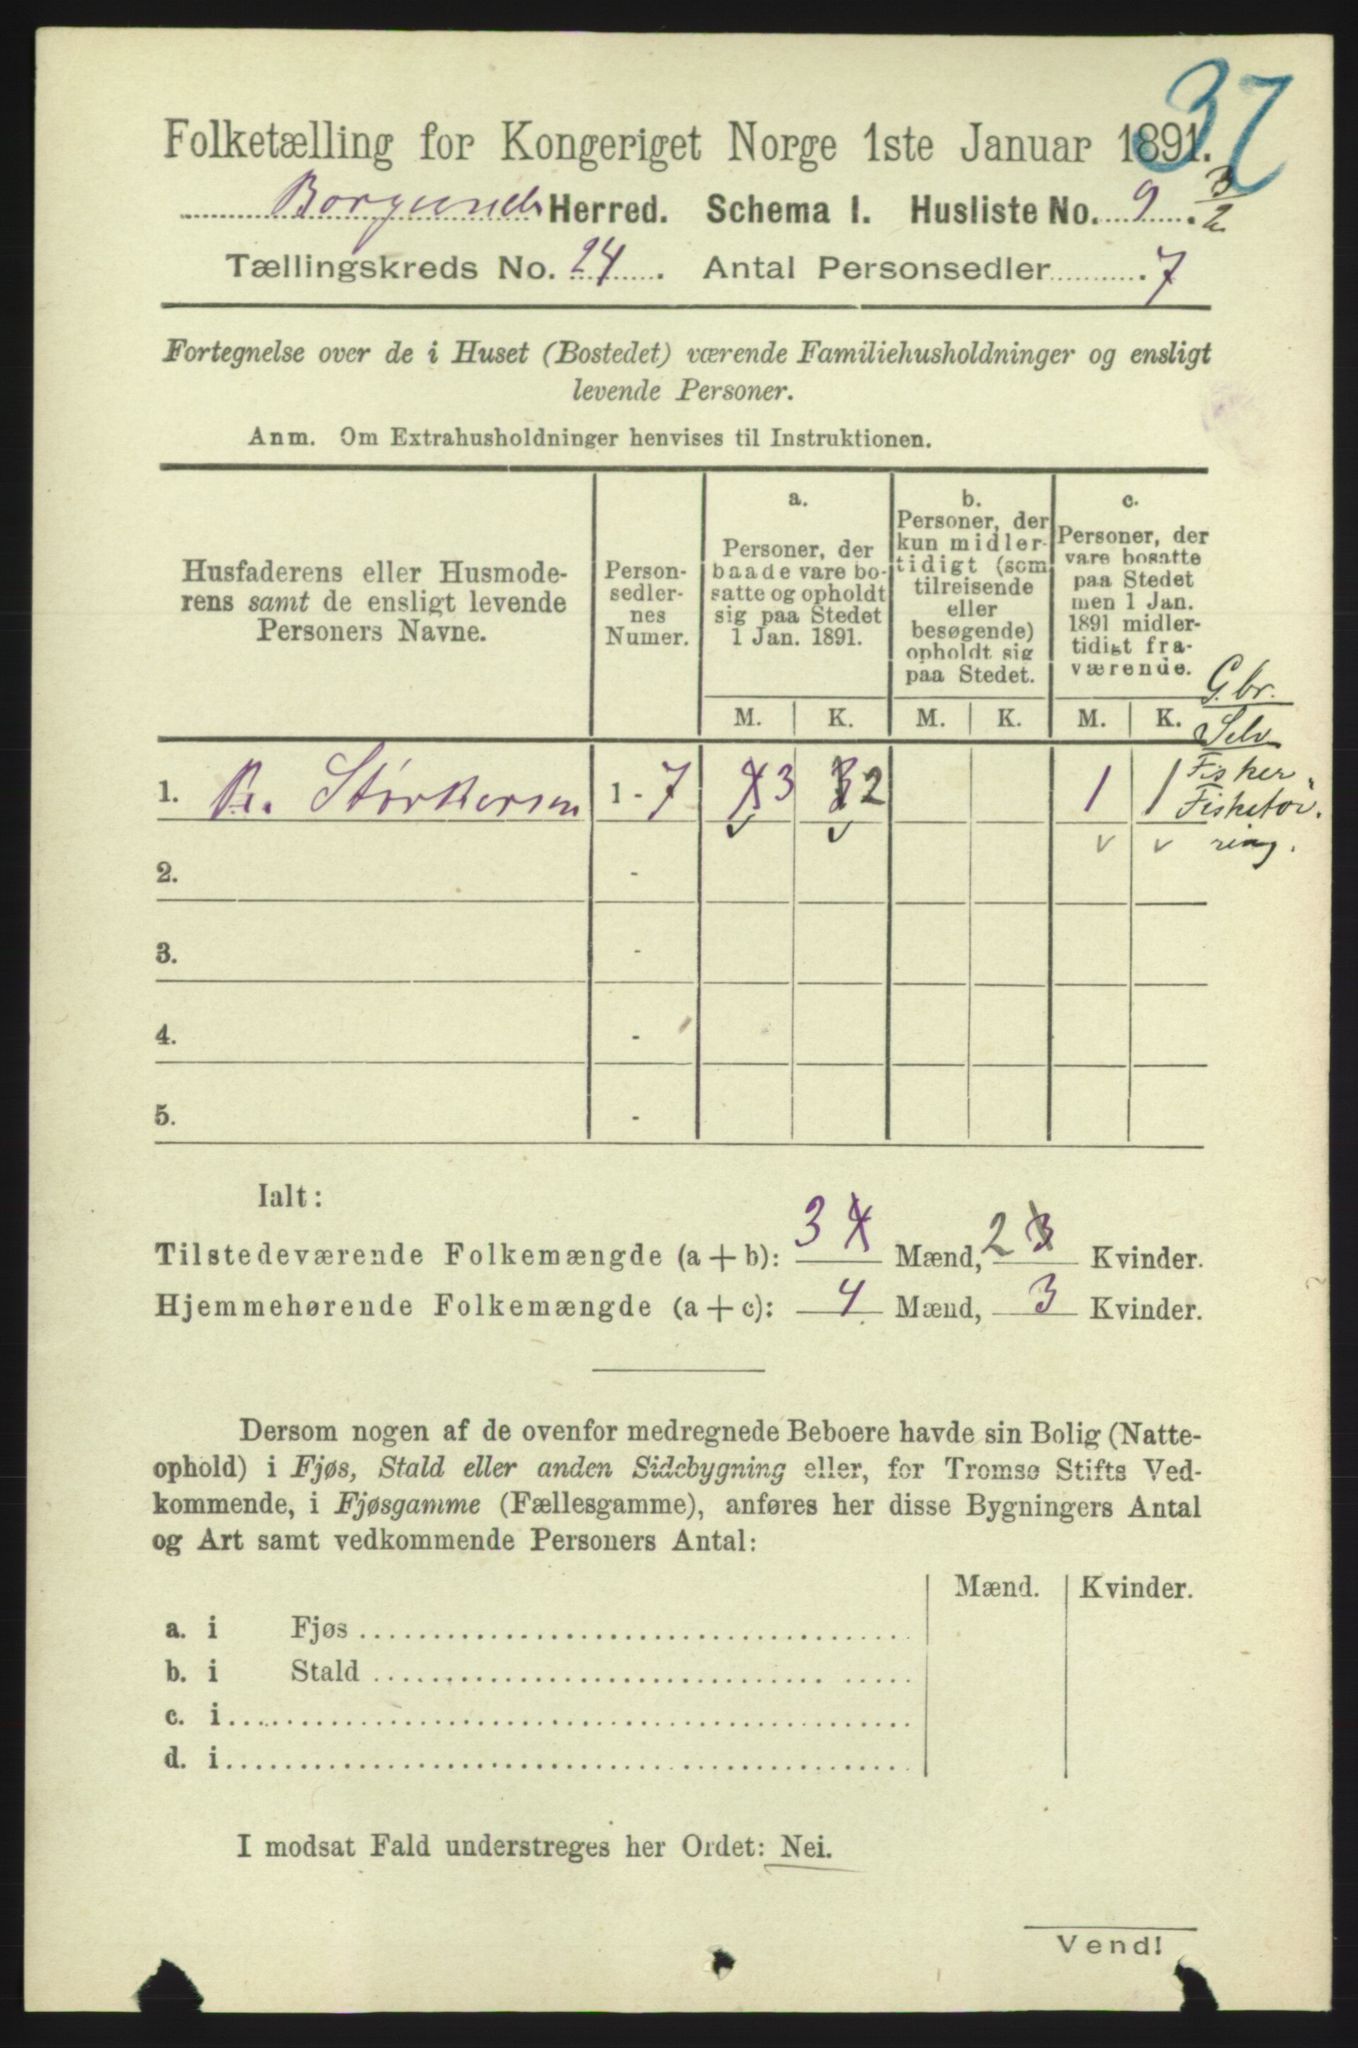 37
Folketælling for Kongeriget Norge 1ste Januar 1891.
Borgunds Herred. Schema I. Husliste No. 9. 3/2
Tællingskreds No. 24. Antal Personsedler 7
Fortegnelse over de i Huset (Bostedet) værende Familiehusholdninger og ensligt
levende Personer.
Anm. Om Extrahusholdninger henvises til Instruktionen.
Husfaderens eller Husmode-
rens samt de ensligt levende
Personers Navne.
Person-
sedler-
nes
Numer.
a.
Personer, der
baade vare bo-
satte og opholdt
sig paa Stedet
1 Jan. 1891.
b.
Personer, der
kun midler-
tidigt (som
tilreisende
eller
besøgende)
opholdt sig
paa Stedet.
c.
Personer, der
vare bosatte
paa Stedet
men 1 Jan.
1891 midler-
tidigt fra-
værende.
G.br.
Selv
Fisker
Fisketøi
ring.
M. K. M. K. M. K.
1. Størkersen 1 - 7 4 3 3 2 1 1
2. -
3. -
4. -
5. -
Ialt:
Tilstedeværende Folkemængde (a + b): 3 4 Mænd, 2 3 Kvinder.
Hjemmehørende Folkemængde (a + c): 4 Mænd, 3 Kvinder.
Dersom nogen af de ovenfor medregnede Beboere havde sin Bolig (Natte-
ophold) i Fjøs, Stald eller anden Sidebygning eller, for Tromsø Stifts Ved-
kommende, i Fjøsgamme (Fællesgamme), anføres her disse Bygningers Antal
og Art samt vedkommende Personers Antal:
Mænd. Kvinder.
a. i Fjøs
b. i Stald
c. i
d. i
I modsat Fald understreges her Ordet: Nei.
Vend!